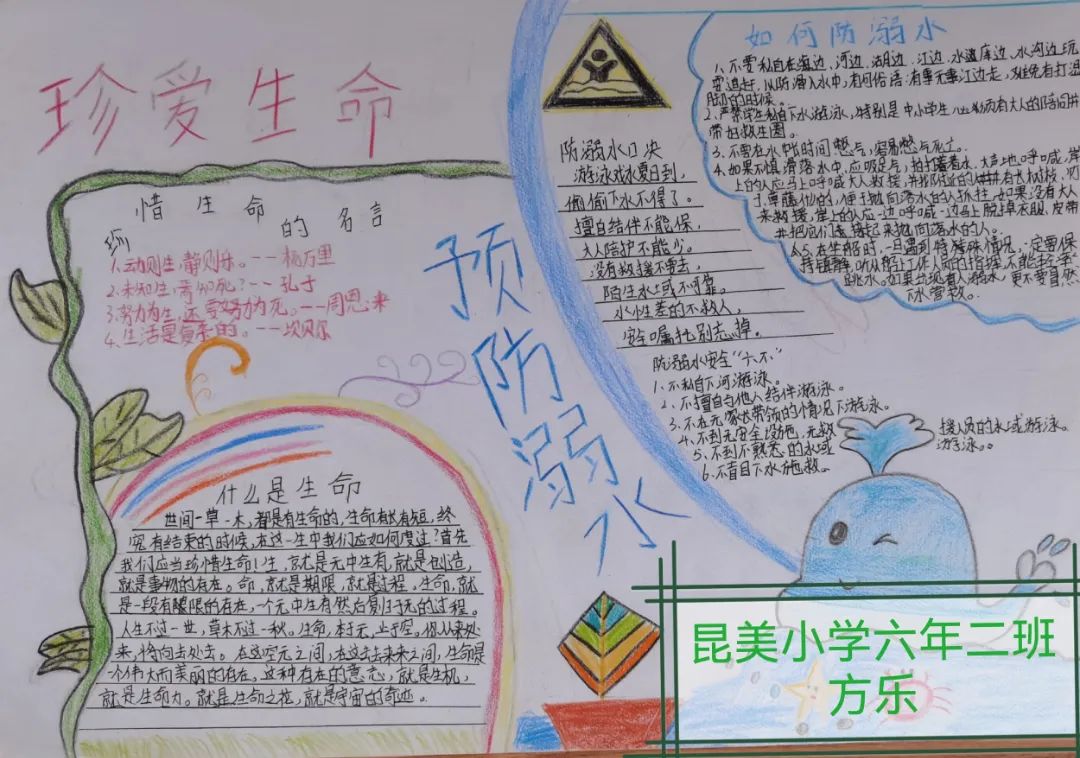 珍爱生命
惜生命
的名言
1.动则生,静则乐。--杨万里
2.未知生,焉知死?--孔子
3.努力为生,还要努力为死。--周恩来
4.生活是复杂的。--坎贝尔
什么是生命
世间一草一木,都是有生命的,生命有长有短,终
究有结束的时候,在这一生中我们应如何度过?首先
我们应当珍惜生命!生,就是无中生有,就是创造,
就是事物的存在。命,就是期限,就是过程,生命,就
是一段有限的存在,一个无中生有然后复归于无的过程。
人生不过一世,草木不过一秋。生命,本于无,止于空。你从来处
来,将向去处去。在这空无之间,在这去去来来之间,生命是
个伟大而美丽的存在。这种存在的意志,就是生机,
就是生命力。就是生命之花,就是宇宙的奇迹。
预防溺水
防溺水口决
游泳戏水夏日到,
偷偷下水不得了。
擅自结伴不能保,
大人陪护不能少。
没有救援不要去,
陌生水域不可靠。
水性差的不救人,
安全嘱托别忘掉。
防溺水安全“六不”
1、不私自下河游泳。
2、不擅自与他人结伴游泳。
3、不在无家长带领的情况下游泳。
4、不到无安全设施、无救
5、不到不熟悉的水域
6、不盲目下水施救。
援人员的水域游泳。
游泳。
如何防溺水
1、不要私自在海边、河边、湖边、江边、水库边、水沟边玩
耍追赶,以防滑入水中,有问俗语:有事无事江边走,难免有打湿
脚的时候。
2、严禁学生私自下水游泳,特别是中小学生必须有大人的陪同并
带好救生圈。
3、不要在水中长时间憋气,容易憋气死亡。
4、如果不慎滑落水中,应吸足气,拍打着水,大声地呼喊,岸
上的人应马上呼喊大人救援,并找附近的
于,草藤他的,便于抛向落水的人抓住,如果没有大人
来救援,岸上的人应一边呼喊一边马上脱掉衣服、皮带
并把它们连接起来抛向落水的人。
5、在坐船时,一旦遇到特殊情况,一定要保
持镇静,听从船上工作人员的指挥,不能轻率
跳水。如果出现有人溺水,更不要冒然
下水营救。
昆美小学六年二班
方乐